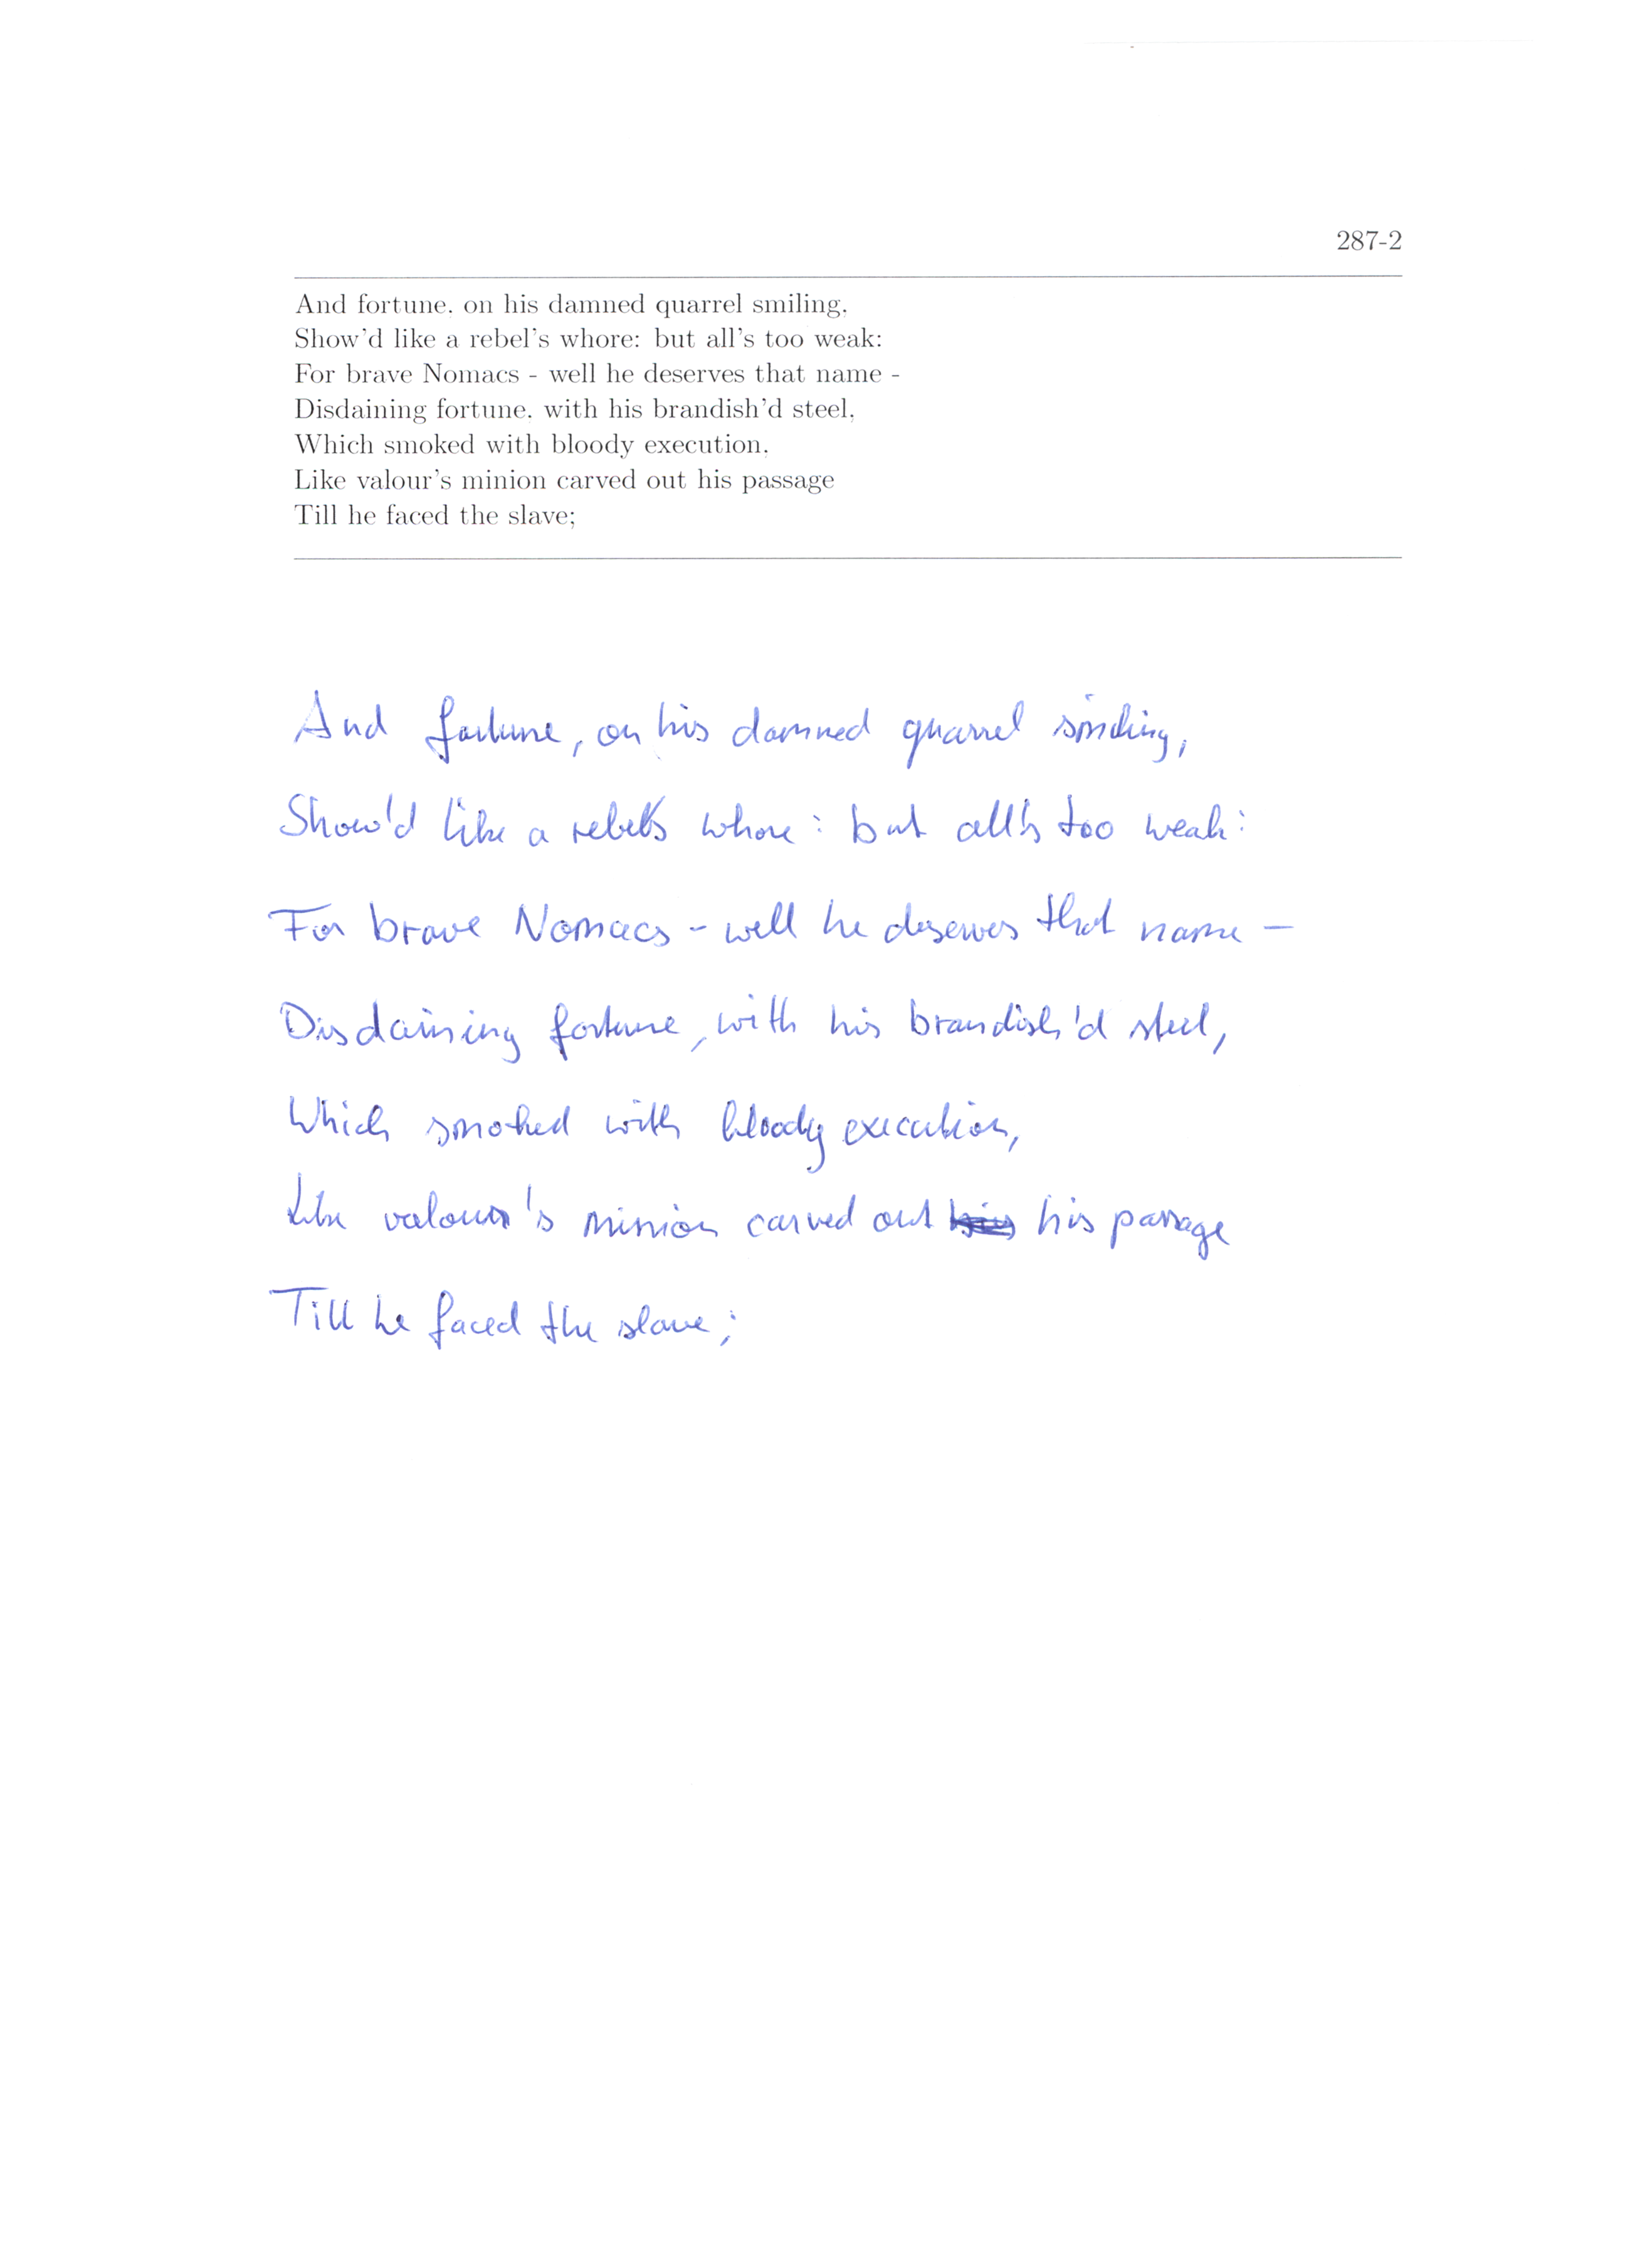 287-2
And fortune, on his damned quarrel smiling,
Show'd like a rebel's whore: but all's too weak:
For brave Nomacs - well he deserves that name -
Disdaining fortune, with his brandish'd steel,
Which smoked with bloody execution,
Like valour's minion carved out his passage
Till he faced the slave;
And fortune, on his damned quarrel smiling,
Show'd like a rebel's whore: but all's too weak:
For brave Nomacs - well he deserves that name -
Disdaining fortune, with his brandish'd steel,
Which smoked with bloody execution,
Like valour's minion carved out his passage
Till he faced the slave;